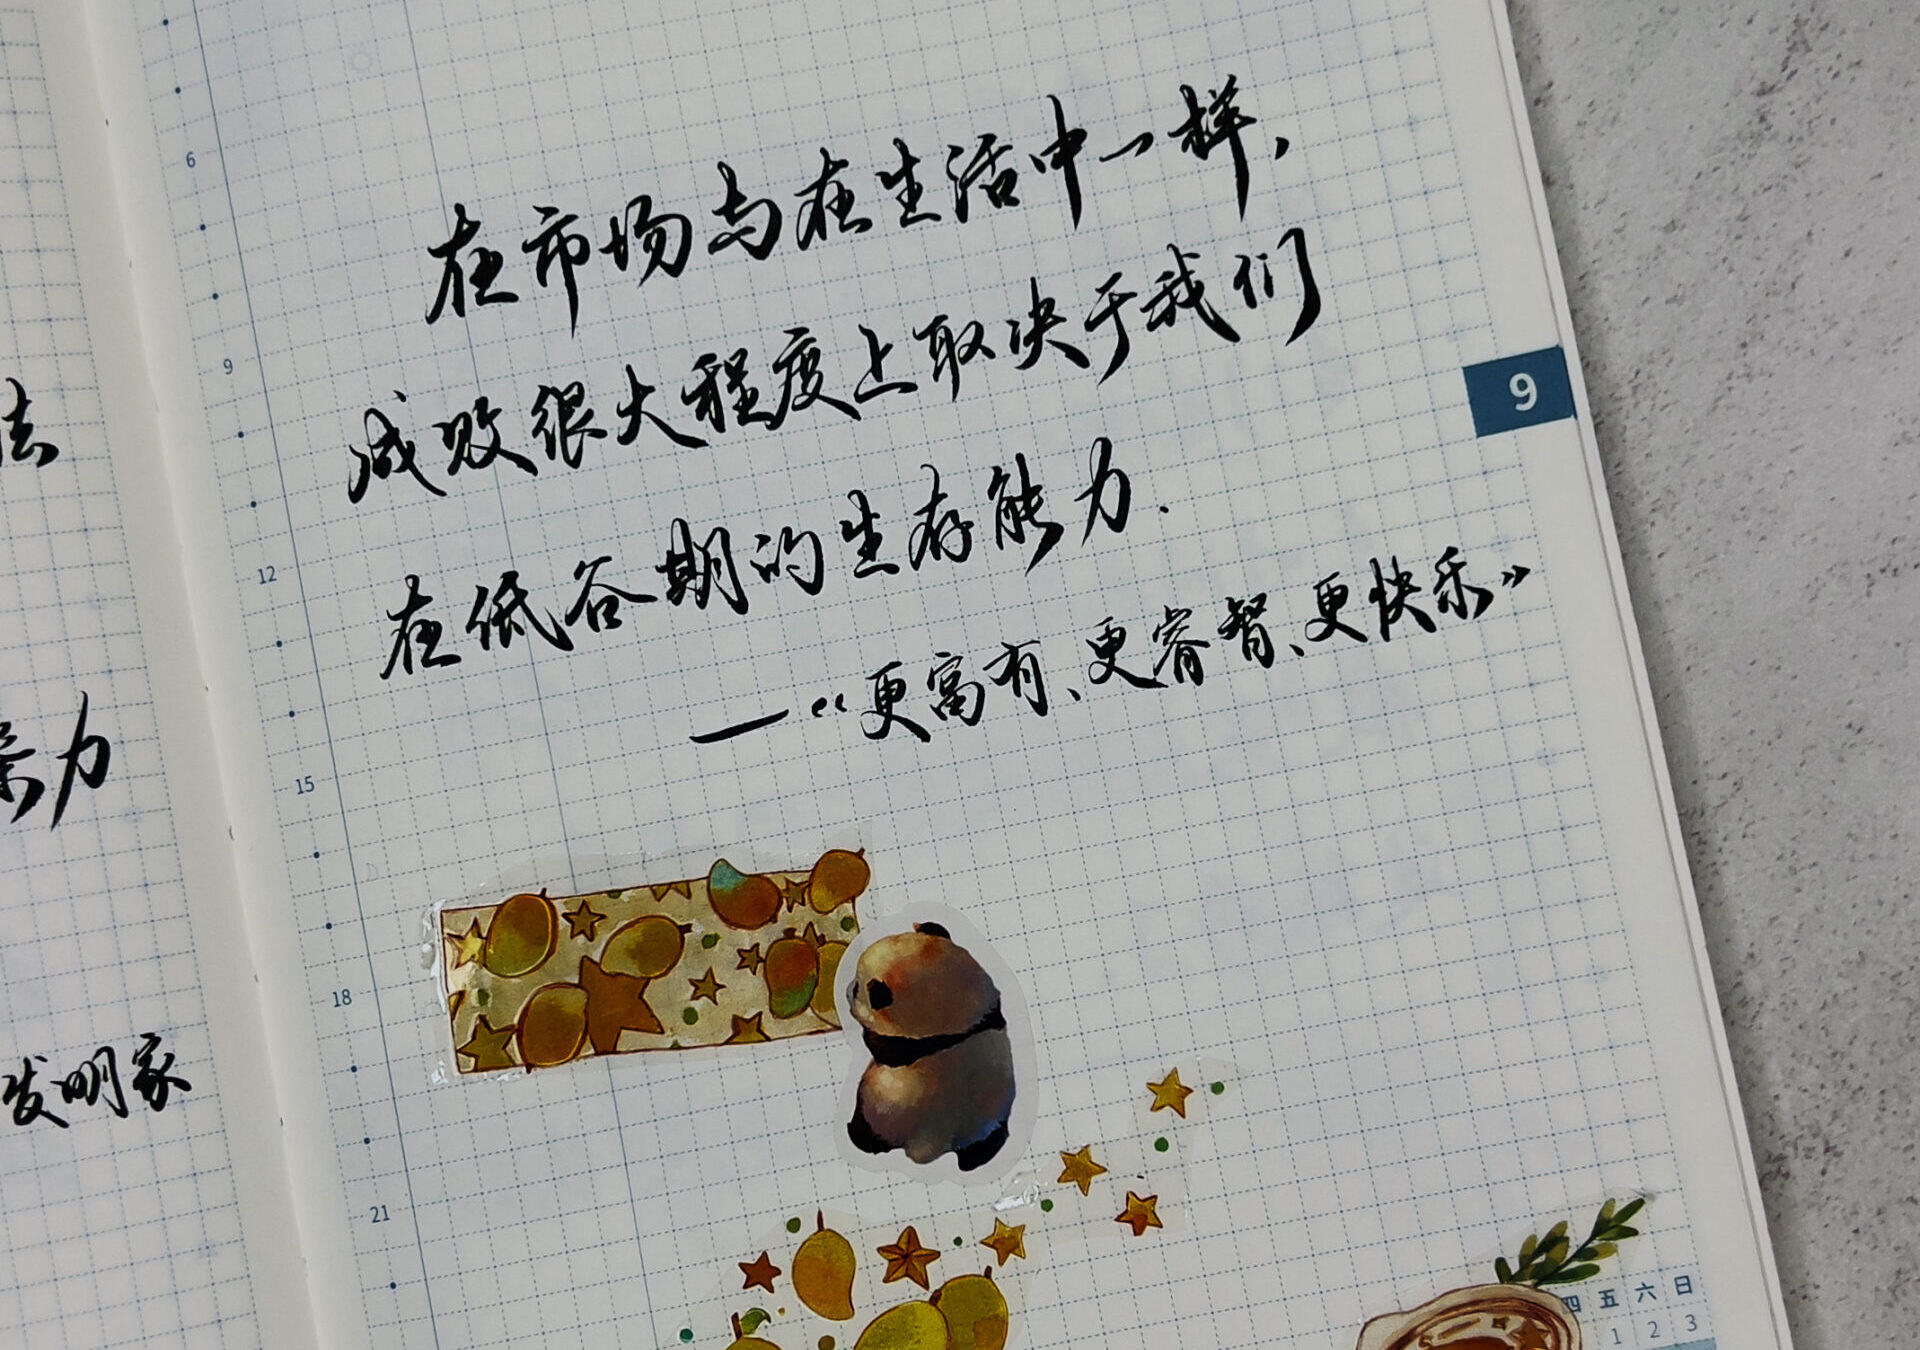 在市场与在生活中一样，
成败很大程度上取决于我们
在低谷期的生存能力.
——“更富有、更睿智、更快乐》
法
力
发明家
6
9
12
15
18
21
9
四 五 六 日
1 2 3